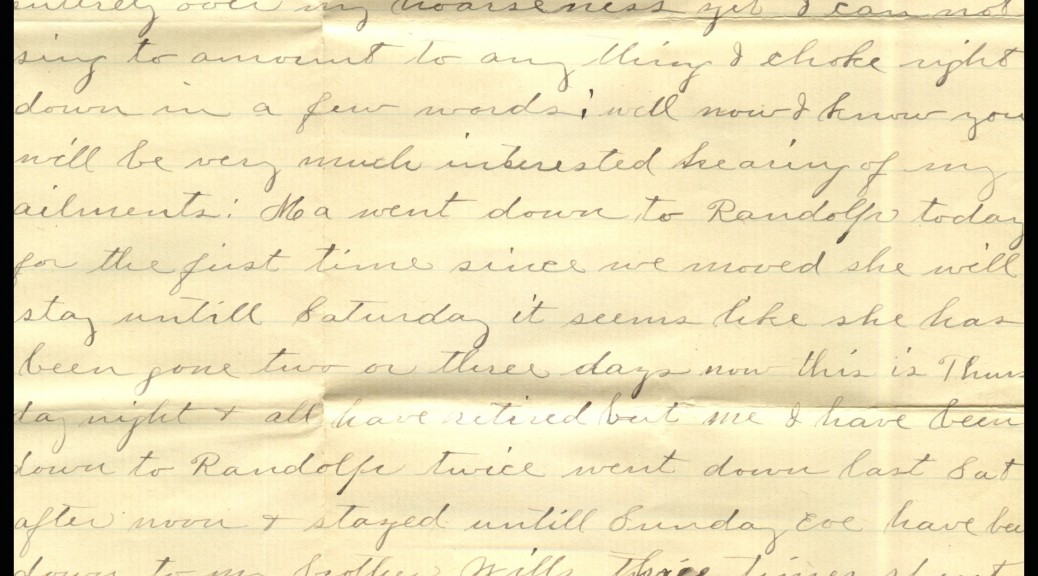 entirely over my hoarseness yet I can not
sing to amount to any thing I choke right
down in a few words; well now I know you
will be very much interested hearing of my
ailments: Ma went down to Randolph today
for the first time since we moved she will
stay untill Saturday it seems like she has
been gone two or three days now this is Thurs
day night & all have retired but me I have been
down to Randolph twice went down last Sat
after noon & stayed untill Sunday Eve have bee
down to my brother Wills times